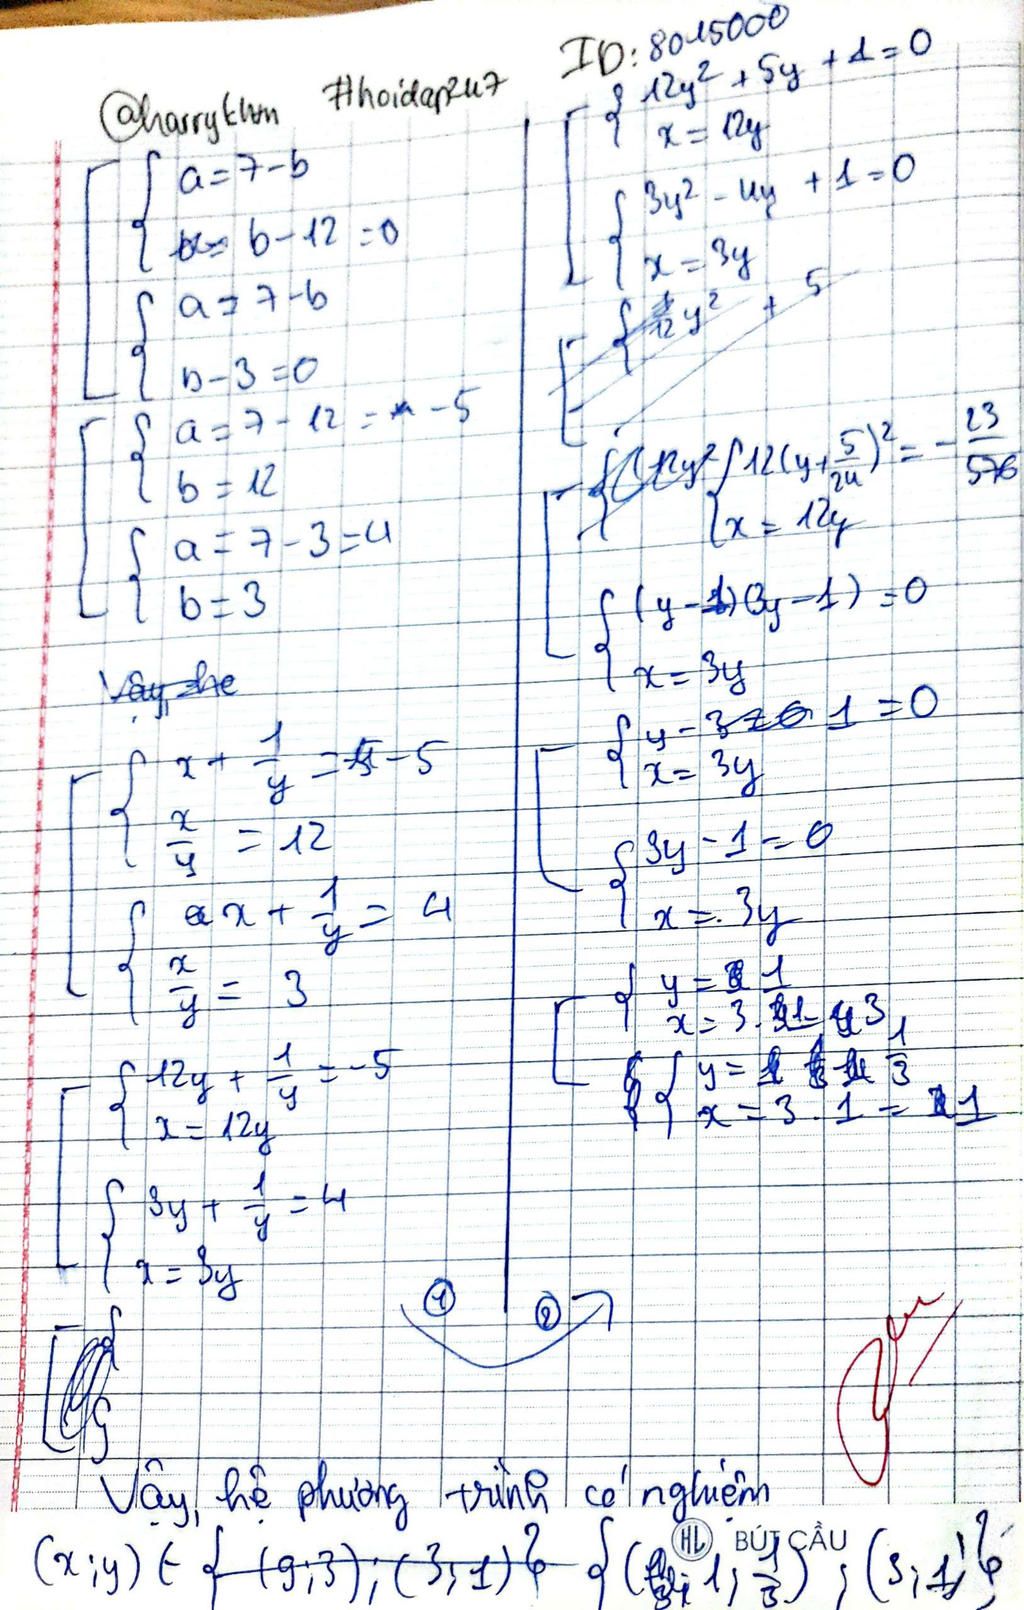 @harrykhm #hoidap247 ID: 8015000
a = 7 - b
b - 12 = 0
a = 7 - b
b - 3 = 0
a = 7 - 12 = - 5
b = 12
a = 7 - 3 = 4
b = 3
Vậy, hệ
x + 1/y = - 5
x/y = 12
x + 1/y = 4
x/y = 3
12y + 1/y = - 5
x = 12y
3y + 1/y = 4
x = 3y
①
12y² + 5y + 1 = 0
x = 12y
3y² - 4y + 1 = 0
x = 3y
12y² + 5
12y² 12(y + 5/24)² = - 23/576
x = 12y
(y - 1)(3y - 1) = 0
x = 3y
y - 1 = 0
x = 3y
3y - 1 = 0
x = 3y
y = 1
x = 3.1 = 3
y = 1/3
x = 3.1 = 1
②
Vậy, hệ phương trình có nghiệm
(x;y) ∈ { (9;3); (3;1) } { (1; 1/3) ; (3; 1) }
HL BÚT CẦU